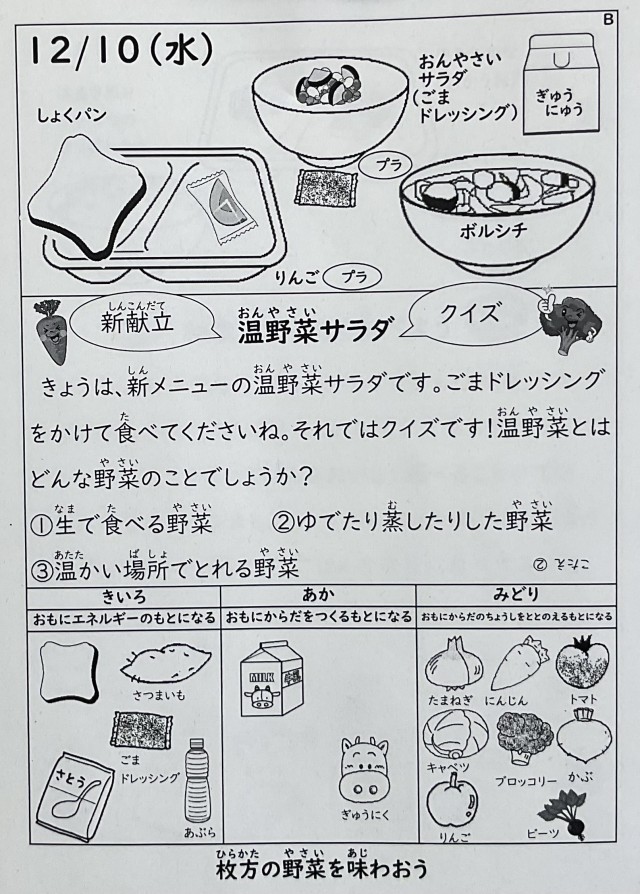 B
12/10(水)
しょくパン
おんやさい
サラダ
(ごま
ドレッシング)
ぎゅう
にゅう
プラ
ボルシチ
りんご プラ
しんこんだて
新献立
おんやさい
温野菜サラダ
クイズ
しん おんやさい
きょうは、新メニューの温野菜サラダです。ごまドレッシング
た おんやさい
をかけて食べてくださいね。それではクイズです!温野菜とは
やさい
どんな野菜のことでしょうか?
なま た やさい む やさい
①生で食べる野菜 ②ゆでたり蒸したりした野菜
あたた ばしょ やさい
③温かい場所でとれる野菜
こたえ ②
きいろ あか みどり
おもにエネルギーのもとになる おもにからだをつくるもとになる おもにからだのちょうしをととのえるもとになる
さつまいも
ごま
ドレッシング
さとう
あぶら
MILK
ぎゅうにく
たまねぎ にんじん トマト
キャベツ ブロッコリー かぶ
りんご ビーツ
ひらかた やさい あじ
枚方の野菜を味わおう